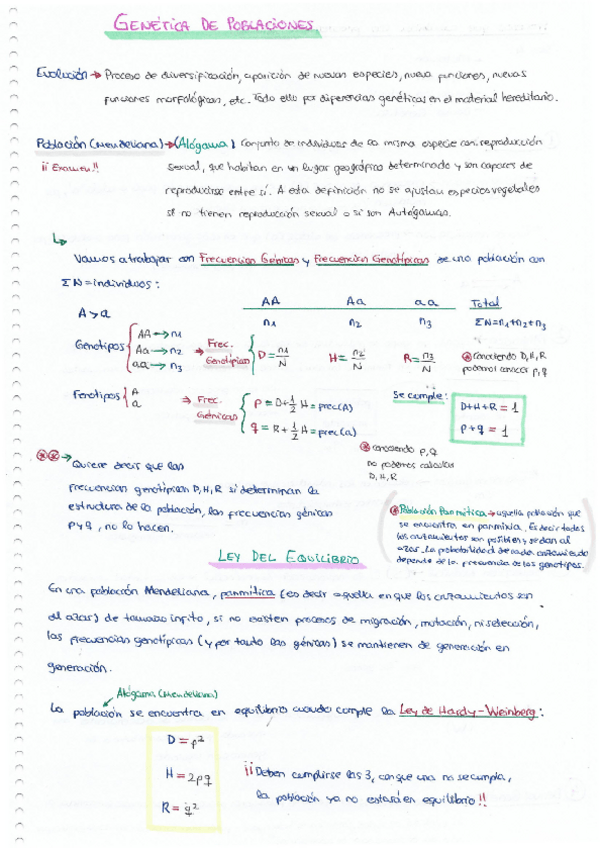 GENÉTICA DE POBLACIONES
Evolución → Proceso de diversificación, aparición de nuevas especies, nueva funciones, nuevas
funciones morfológicas, etc. Todo ello por diferencias genéticas en el material hereditario.
Población (Mendeliana) → (Alógama) Conjunto de individuos de la misma especie con reproducción
¡¡ Examen!! sexual, que habitan en un lugar geográfico determinado y son capaces de
reproducirse entre sí. A esta definición no se ajustan especies vegetales
si no tienen reproducción sexual o si son Autógamas.
Vamos a trabajar con Frecuencias Génicas y Frecuencias Genotípicas de una población con
ΣN = individuos:
AA Aa aa Total
A > a n1 n2 n3 ΣN = n1 + n2 + n3
Genotipos { AA → n1
Aa → n2
aa → n3
⇒ Frec. Genotípicas { D = n1/N H = n2/N R = n3/N
⊛ conociendo D, H, R
podemos conocer p, q
Fenotipos { A
a
⇒ Frec. Génicas { p = D + 1/2 H = frec(A)
q = R + 1/2 H = frec(a)
Se cumple:
D + H + R = 1
p + q = 1
⊛ conociendo p, q
no podemos calcular
D, H, R
⊛⊛ → Quiere decir que las
frecuencias genotípicas D, H, R si determinan la
estructura de la población, las frecuencias génicas
p y q, no lo hacen.
⊛ Población Panmítica → aquella población que
se encuentra en panmixia. Es decir todos
los cruzamientos son posibles y se dan al
azar. La probabilidad de cada cruzamiento
depende de la frecuencia de los genotipos.
LEY DEL EQUILIBRIO
En una población Mendeliana, panmítica (es decir aquella en que los cruzamientos son
al azar) de tamaño infito, si no existen procesos de migración, mutación, ni selección,
las frecuencias genotípicas (y por tanto las génicas) se mantienen de generación en
generación.
Alógama (Mendeliana)
La población se encuentra en equilibrio cuando cumple la Ley de Hardy-Weinberg:
D = p²
H = 2pq
R = q²
¡¡Deben cumplirse las 3, con que una no se cumpla,
la población ya no estará en equilibrio!!